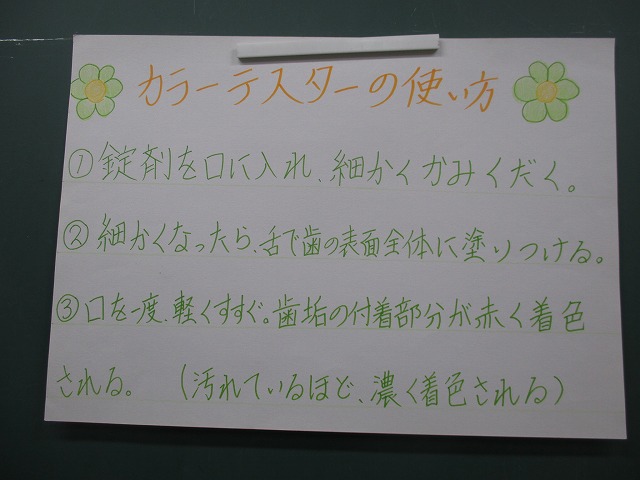 カラーテスターの使い方
①錠剤を口に入れ、細かくかみくだく。
②細かくなったら、舌で歯の表面全体に塗りつける。
③口を一度、軽くすすぐ。歯垢の付着部分が赤く着色
される。 (汚れているほど、濃く着色される)